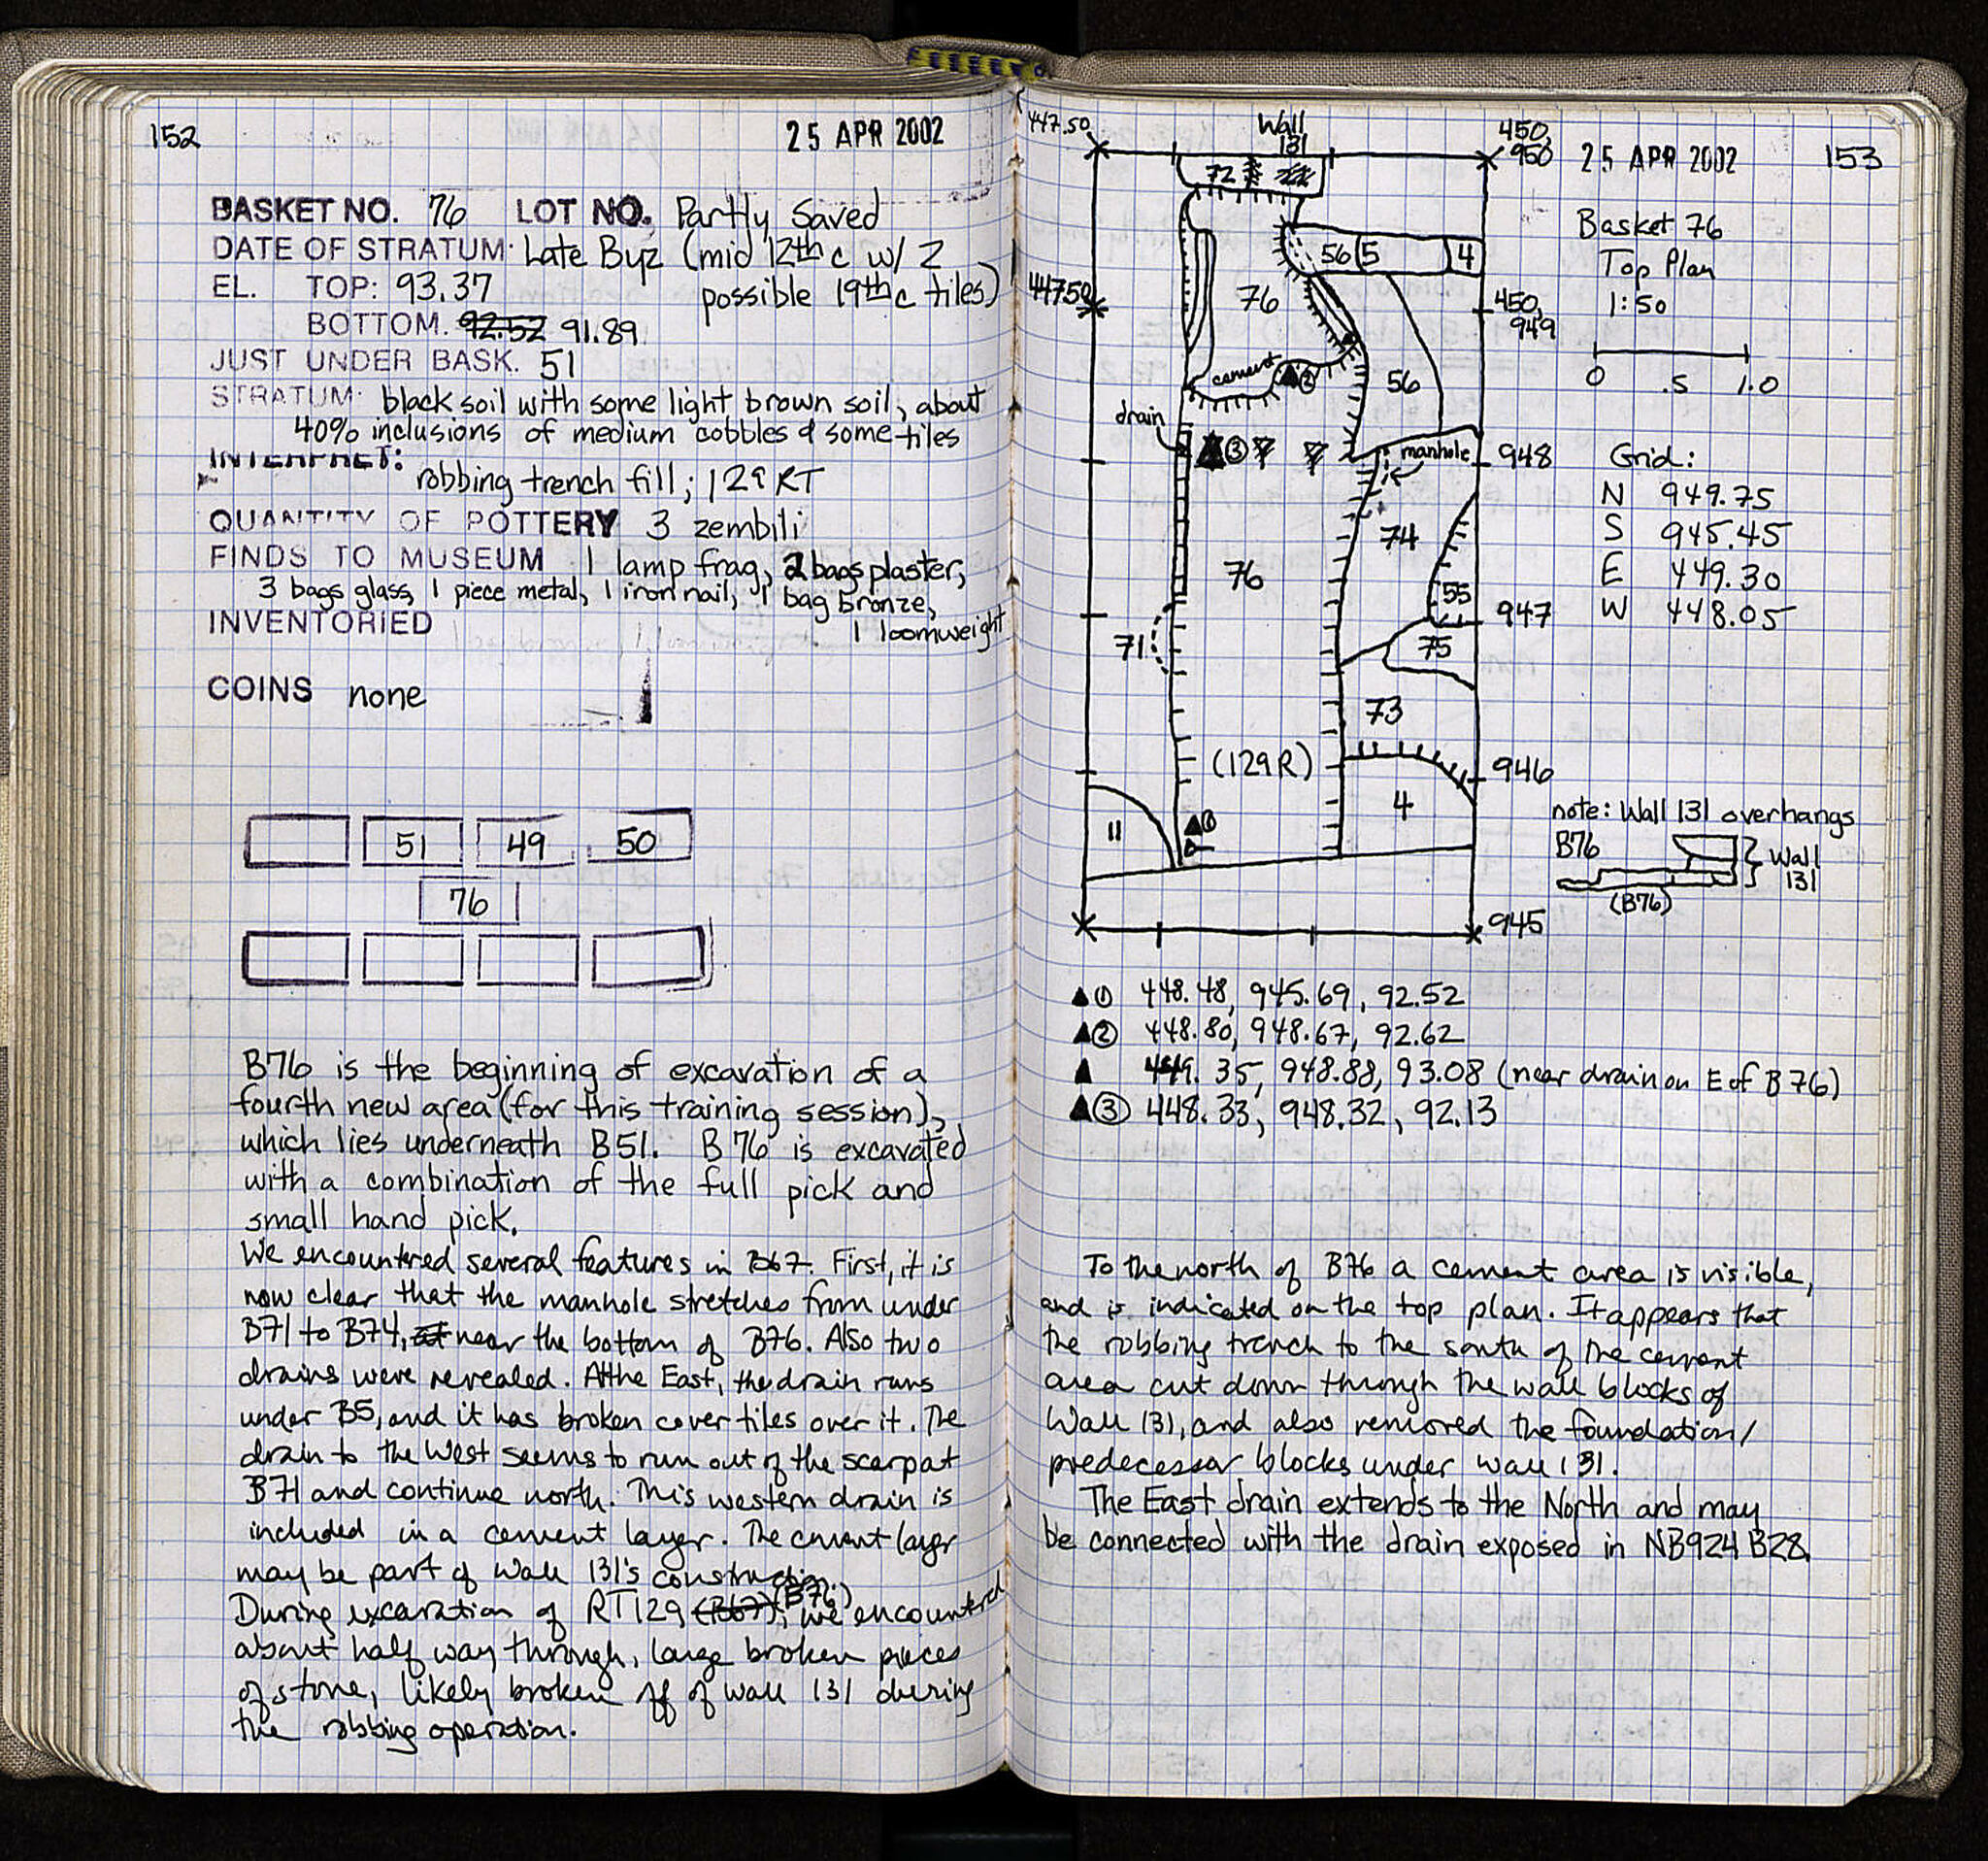 152
25 APR 2002
BASKET NO. 76 LOT NO. Partly Saved
DATE OF STRATUM: Late Byz (mid 12th c w/ 2
EL. TOP: 93.37 possible 19th c tiles)
BOTTOM. 92.52 91.89
JUST UNDER BASK. 51
STRATUM: black soil with some light brown soil, about
40% inclusions of medium cobbles & some tiles
INTERPRET:
robbing trench fill; 129 RT
QUANTITY OF POTTERY 3 zembili
FINDS TO MUSEUM 1 lamp frag, 2 bags plaster,
3 bags glass, 1 piece metal, 1 iron nail, 1 bag bronze,
INVENTORIED 1 loomweight
COINS none
51 49 50
76
B76 is the beginning of excavation of a
fourth new area (for this training session),
which lies underneath B51. B76 is excavated
with a combination of the full pick and
small hand pick.
We encountered several features in B67. First, it is
now clear that the manhole stretches from under
B71 to B74, at near the bottom of B76. Also two
drains were revealed. At the East, the drain runs
under B5, and it has broken cover tiles over it. The
drain to the West seems to run out of the scarp at
B71 and continue north. This western drain is
included in a cement layer. The cement layer
may be part of Wall 131's construction.
During excavation of RT129 (B67), (B76) we encountered
about half way through, large broken pieces
of stone, likely broken off of wall 131 during
the robbing operation.
447.50
Wall
131
450,
950
25 APR 2002
153
72
56 5 4
447.50
76
450,
949
cement
2
56
drain
3
manhole
948
74
76
55
947
71
75
73
(129R)
946
4
11
1
945
Basket 76
Top Plan
1:50
0 .5 1.0
Grid:
N 949.75
S 945.45
E 449.30
W 448.05
note: Wall 131 overhangs
B76
Wall
131
(B76)
▲① 448.48, 945.69, 92.52
▲② 448.80, 948.67, 92.62
▲ 449.35, 948.88, 93.08 (near drain on E of B76)
▲③ 448.33, 948.32, 92.13
To the north of B76 a cement area is visible,
and is indicated on the top plan. It appears that
the robbing trench to the south of the cement
area cut down through the wall blocks of
Wall 131, and also removed the foundation/
predecessor blocks under wall 131.
The East drain extends to the North and may
be connected with the drain exposed in NB924 B28.